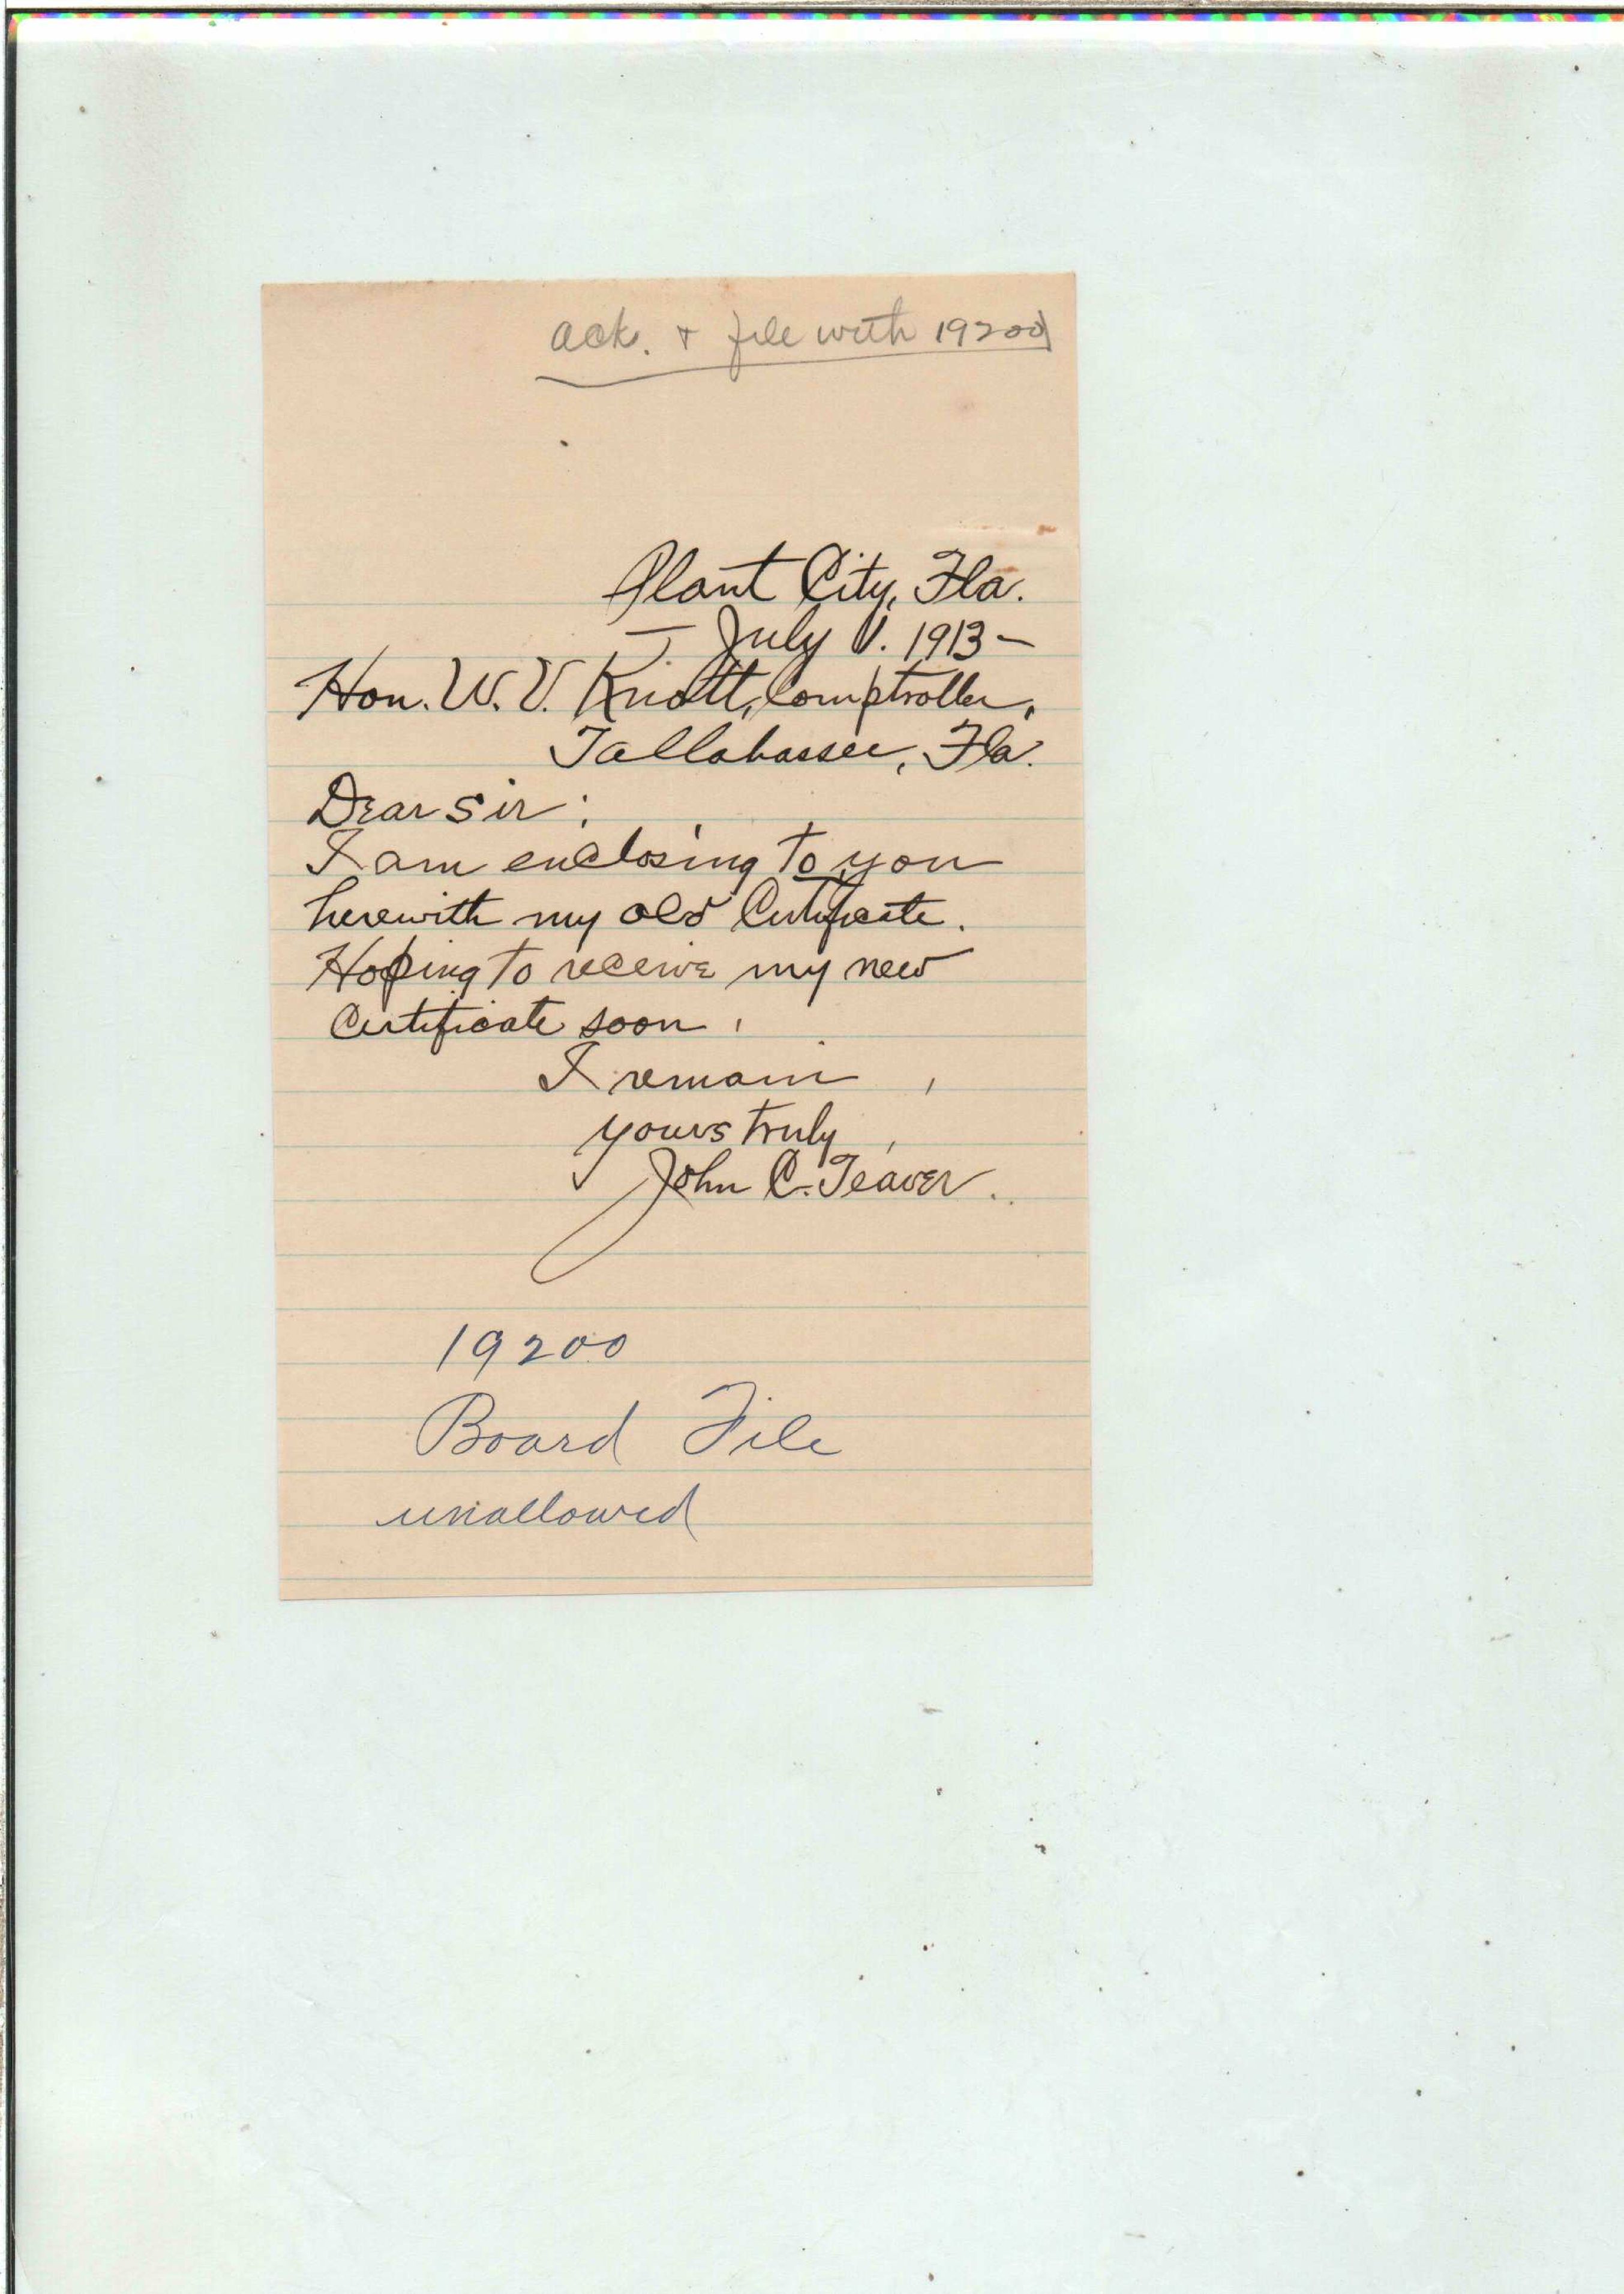 ack. & file with 19200
Plant City, Fla.
— July 1. 1913 —
Hon. W. V. Knott, Comptroller,
Tallahassee, Fla.
Dear Sir :
I am enclosing to you
herewith my old Certificate.
Hoping to receive my new
Certificate soon,
I remain ,
yours truly ,
John C. Teaver.
19200
Board File
unallowed